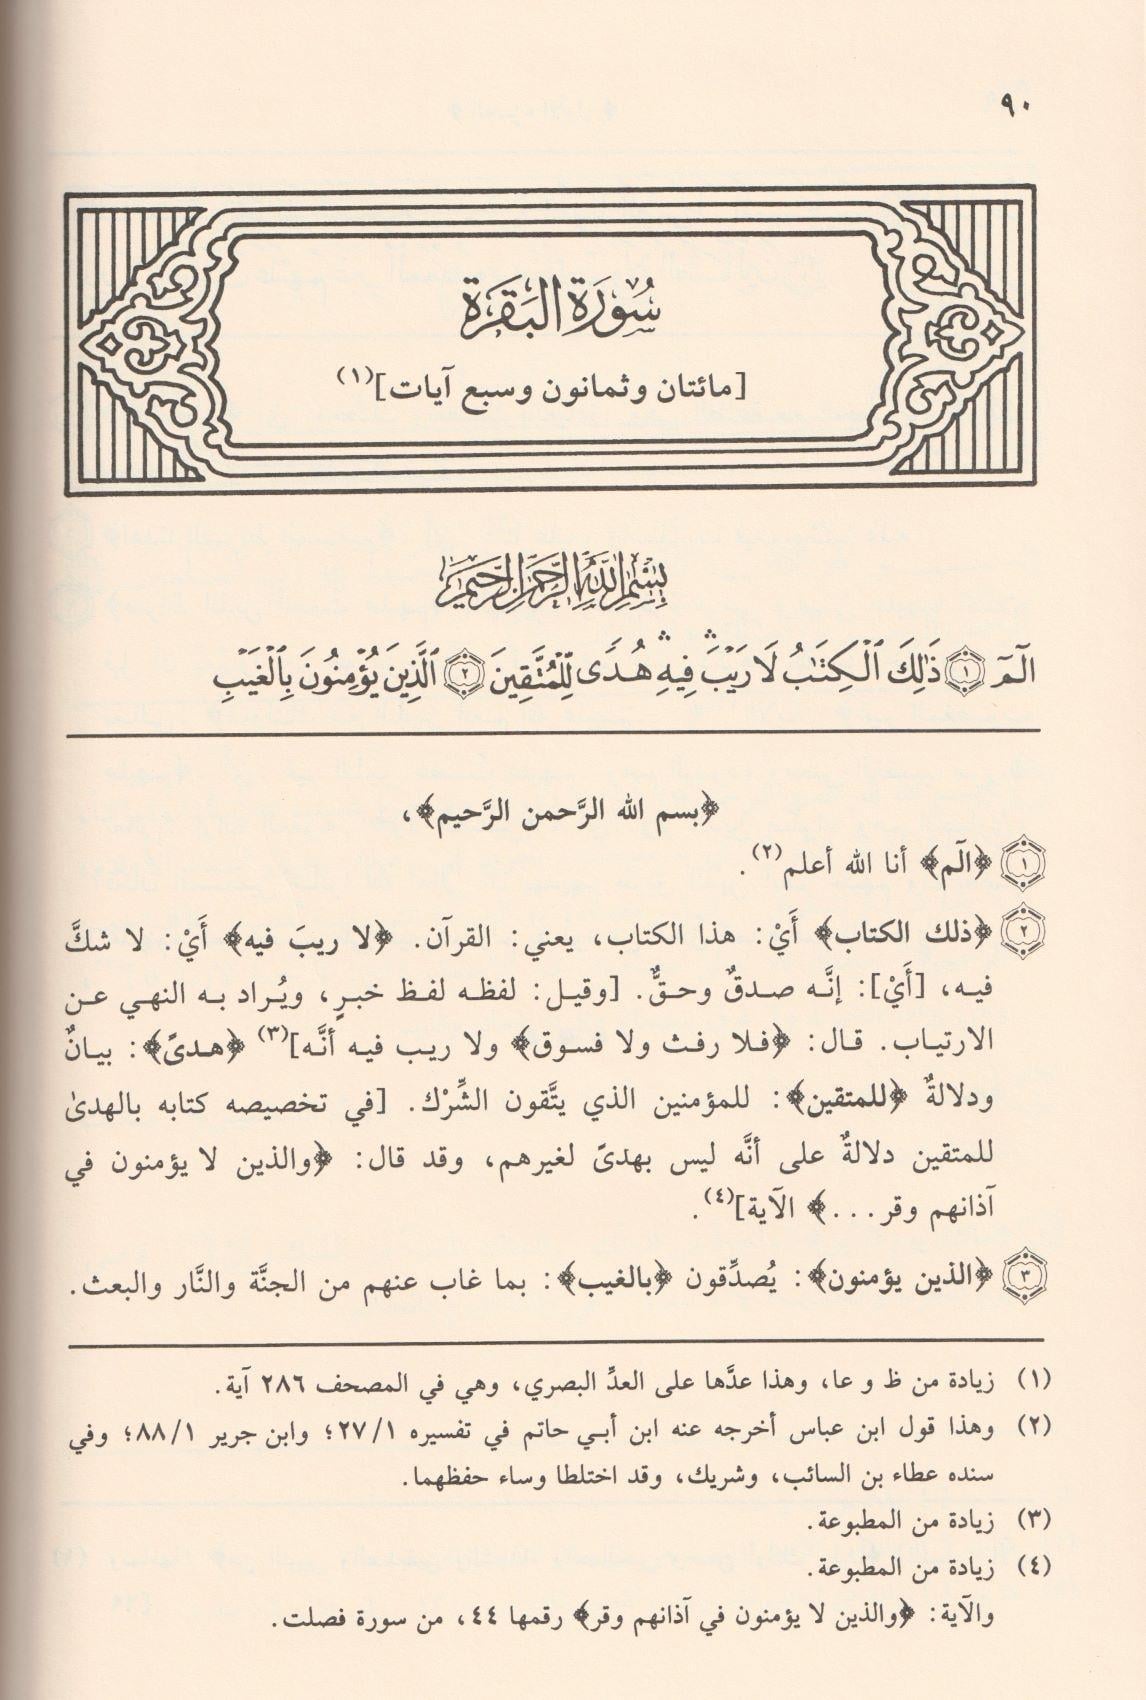 ٩٠
سُورَةُ البَقَرَة
[مائتان وثمانون وسبع آيات](١)
بِسْمِ اللَّهِ الرَّحْمَنِ الرَّحِيمِ
الٓمٓ ١ ذَٰلِكَ ٱلْكِتَٰبُ لَا رَيْبَ ۛ فِيهِ ۛ هُدًى لِّلْمُتَّقِينَ ٢ ٱلَّذِينَ يُؤْمِنُونَ بِٱلْغَيْبِ
﴿بسم الله الرَّحمن الرَّحيم﴾،
١ ﴿الٓم﴾ أنا الله أعلم(٢).
٢ ﴿ذلك الكتاب﴾ أَيْ: هذا الكتاب، يعني: القرآن. ﴿لا ريبَ فيه﴾ أَيْ: لا شكَّ
فيه، [أَيْ]: إنَّه صدقٌ وحقٌّ. [وقيل: لفظه لفظ خبرٍ، ويُراد به النهي عن
الارتياب. قال: ﴿فلا رفث ولا فسوق﴾ ولا ريب فيه أنَّه](٣) ﴿هدىً﴾: بيانٌ
ودلالةٌ ﴿للمتقين﴾: للمؤمنين الذي يتَّقون الشِّرْك. [في تخصيصه كتابه بالهدىٰ
للمتقين دلالةٌ على أنَّه ليس بهدىً لغيرهم، وقد قال: ﴿والذين لا يؤمنون في
آذانهم وقر...﴾ الآية](٤).
٣ ﴿الذين يؤمنون﴾: يُصدِّقون ﴿بالغيب﴾: بما غاب عنهم من الجنَّة والنَّار والبعث.
(١) زيادة من ظ و عا، وهذا عدَّها على العدِّ البصري، وهي في المصحف ٢٨٦ آية.
(٢) وهذا قول ابن عباس أخرجه عنه ابن أبي حاتم في تفسيره ٢٧/١؛ وابن جرير ٨٨/١؛ وفي
سنده عطاء بن السائب، وشريك، وقد اختلطا وساء حفظهما.
(٣) زيادة من المطبوعة.
(٤) زيادة من المطبوعة.
والآية: ﴿والذين لا يؤمنون في آذانهم وقر﴾ رقمها ٤٤، من سورة فصلت.